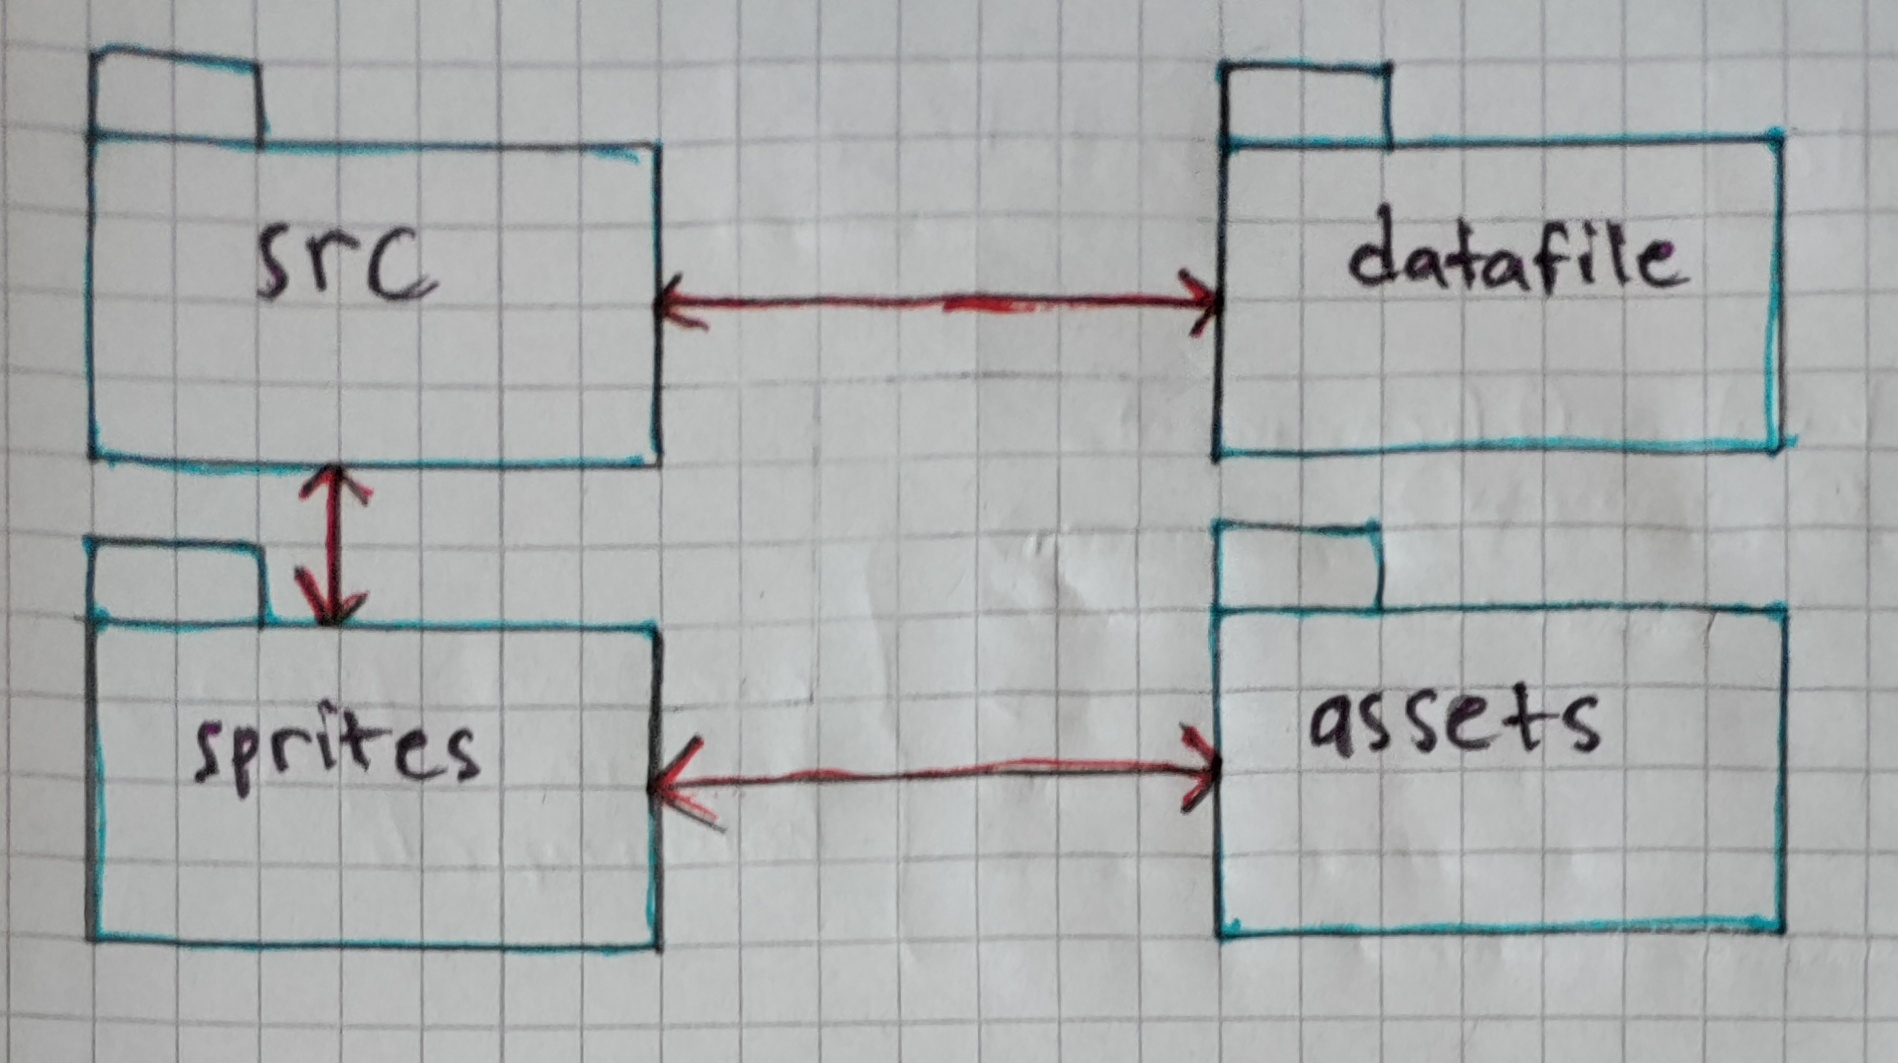 src
datafile
sprites
assets